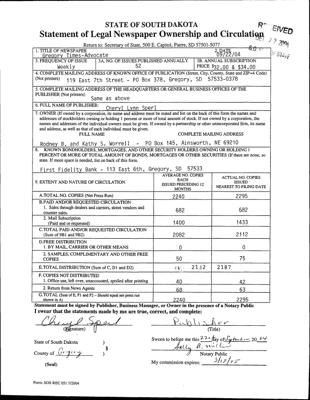 STATE OF SOUTH DAKOTA
Statement of Legal Newspaper Ownership and Circulation
Return to: Secretary of State, 500 E. Capitol, Pierre, SD 57501-5077
1. TITLE OF NEWSPAPER
Gregory Times-Advocate
2. DATE
09/22/04
3. FREQUENCY OF ISSUE
Weekly
3A. NO. OF ISSUES PUBLISHED ANNUALLY
52
3B. ANNUAL SUBSCRIPTION
PRICE $32.00 & $34.00
4. COMPLETE MAILING ADDRESS OF KNOWN OFFICE OF PUBLICATION (Street, City, County, State and ZIP+4 Code)
(Not printer) 119 East 7th Street - PO Box 378, Gregory, SD 57533-0378
5. COMPLETE MAILING ADDRESS OF THE HEADQUARTERS OR GENERAL BUSINESS OFFICES OF THE
PUBLISHER (Not printer)
Same as above
6. FULL NAME OF PUBLISHER:
Cheryl Lynn Sperl
7. OWNER (If owned by a corporation, its name and address must be stated and list on the back of this form the names and
addresses of stockholders owning or holding 1 percent or more of total amount of stock. If not owned by a corporation, the
names and addresses of the individual owners must be given. If owned by a partnership or other unincorporated firm, its name
and address, as well as that of each individual must be given.
FULL NAME COMPLETE MAILING ADDRESS
Rodney B. and Kathy S. Worrell - PO Box 145, Ainsworth, NE 69210
8. KNOWN BONDHOLDERS, MORTGAGES, AND OTHER SECURITY HOLDERS OWNING OR HOLDING 1
PERCENT OR MORE TOTAL AMOUNT OF BONDS, MORTGAGES OR OTHER SECURITIES (If there are none, so
state. If more space is needed, list on back of this form.
First Fidelity Bank - 113 East 6th, Gregory, SD 57533
9. EXTENT AND NATURE OF CIRCULATION
AVERAGE NO. COPIES
EACH
ISSUED PRECEDING 12
MONTHS
ACTUAL NO. COPIES
ISSUED
NEAREST TO FILING DATE
A. TOTAL NO. COPIES (Net Press Run) 2240 2295
B. PAID AND/OR REQUESTED CIRCULATION
1. Sales through dealers and carriers, street vendors and
counter sales. 682 682
2. Mail Subscription
(Paid and or requested) 1400 1433
C. TOTAL PAID AND/OR REQUESTED CIRCULATION
(Sum of 9B1 and 9B2) 2082 2112
D. FREE DISTRIBUTION
1. BY MAIL, CARRIER OR OTHER MEANS 0 0
2. SAMPLES, COMPLIMENTARY AND OTHER FREE
COPIES 50 75
E. TOTAL DISTRIBUTION (Sum of C, D1 and D2) 2132 2187
F. COPIES NOT DISTRIBUTED
1. Office use, left over, unaccounted, spoiled after printing 40 42
2. Return from News Agents 68 63
G. TOTAL (Sum of E, F1 and F2 - Should equal net press run
shown in A) 2240 2295
Statement must be signed by Publisher, Business Manager, or Owner in the presence of a Notary Public
I swear that the statements made by me are true, correct, and complete:
Cheryl Sperl Publisher
(Signature) (Title)
State of South Dakota )
County of Gregory )
§
(Seal)
Sworn to before me this 22 day of September 20 04
Notary Public
My commission expires: